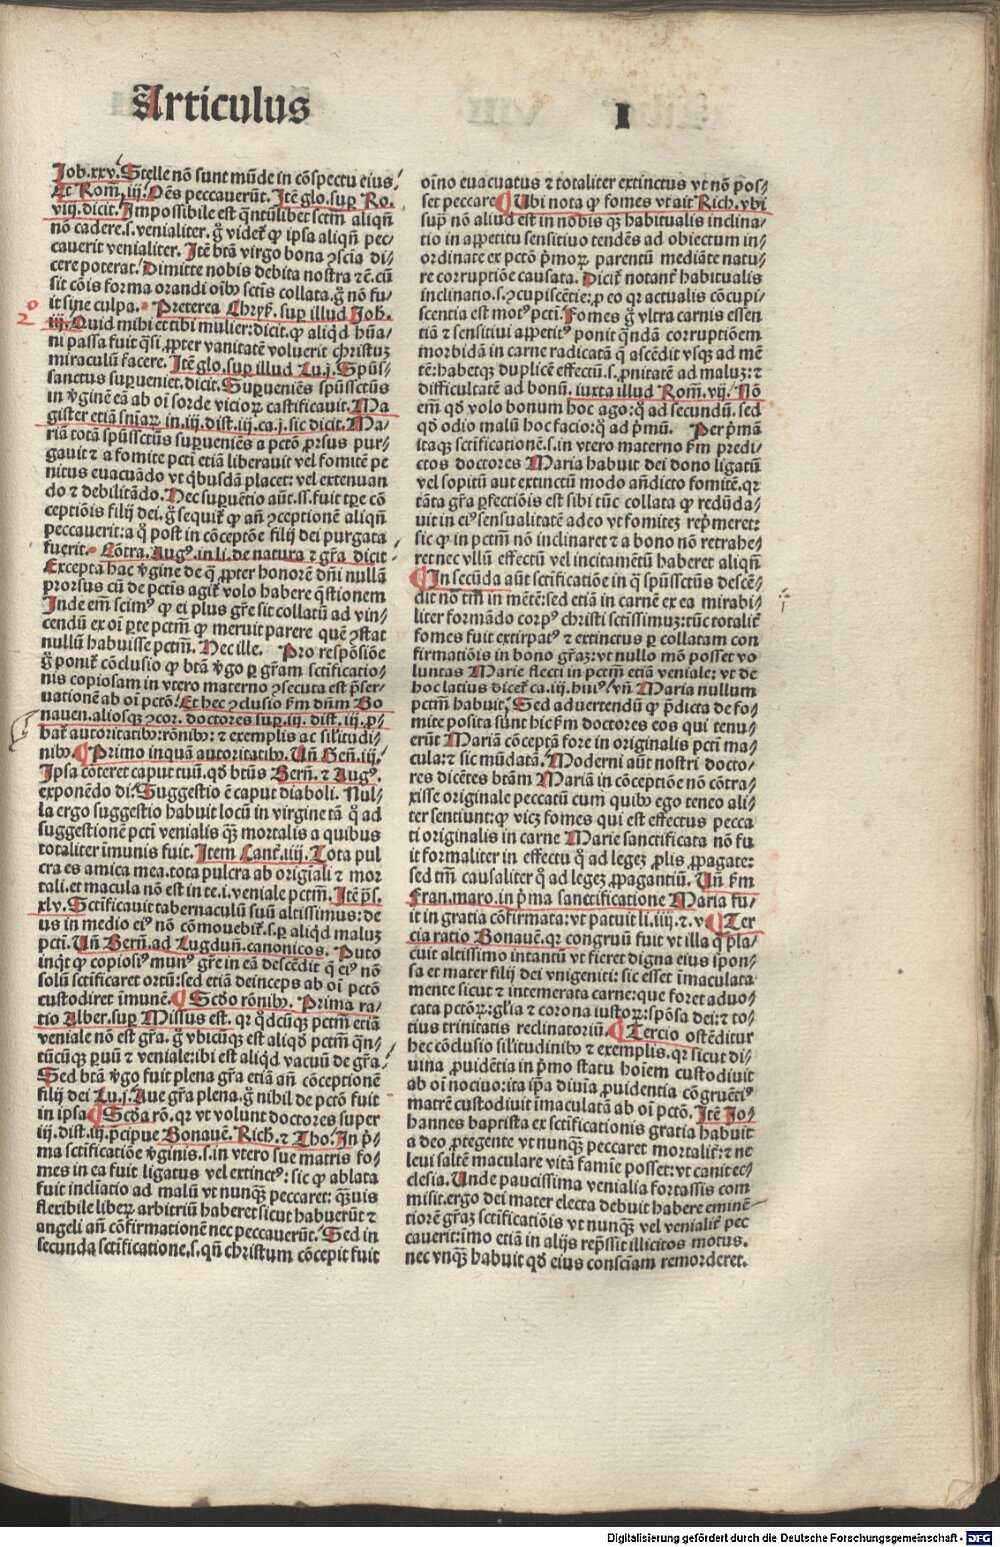 Articulus
I
Job.xxv. Stelle nō sunt mūde in cōspectu eius.
Et Rom̄.iij. Oēs peccauerūt. Jtē glo.sup Ro.
viij.dicit. Jmpossibile est qn̄tūlibet sctm̄ aliqn̄
nō cadere.s.venialiter. g̊ videt̄ ꝙ ipsa aliqn̄ pec/
cauerit venialiter. Jtē btā virgo bona ꝯscīa di/
cere poterat. Dimitte nobis debita nostra ⁊c̄.cū
sit cōis forma orandi oībꝰ sctīs collata.g̊ nō fu/
it sine culpa. Preterea Chryſ. sup illud Joh.
2º
iij. Quid mihi et tibi mulier:dicit.ꝙ aliqd hūa/
ni passa fuit qͣsi ꝓpter vanitatē voluerit christuꝫ
miraculū facere. Jtē glo.sup illud Lu.j. Spūs/
sanctus supueniet.dicit. Supueniēs spūssctūs
in ꝟginē eā ab oī sorde vicioꝝ castificauit. Ma
gister etiā sniaꝝ in.iij.dist.iij.ca.j.sic dicit. Ma/
riā totā spūssctūs supueniēs a pctō ꝓrsus pur/
gauit ⁊ a fomite pctī etiā liberauit vel fomitē pe
nitus euacuādo vt qͥbusdā placet: vel extenuan
do ⁊ debilitādo. Nec supuētio aūt.ss.fuit tp̄e cō
ceptiōis filij dei.g̊ sequit̄ ꝙ añ ꝯceptionē aliqn̄
peccauerit:a qͦ post in cōceptōe filij dei purgata
fuerit. Cōtra. Augꝰ.in li.de natura ⁊ gr̄a dicit
Excepta hac ꝟgine de qͣ ꝓpter honorē dn̄i nullā
prorsus cū de pctīs agit̄ volo habere qͣstionem
Jnde em̄ scimꝰ ꝙ ei plus gr̄e sit collatū ad vin/
cendū ex oī pte pctm̄ ꝙ meruit parere quē ꝯstat
nullū habuisse pctm̄. Hec ille. Pro respōsiōe
g̊ ponit̄ cōclusio ꝙ btā ꝟgo ꝑ gr̄am sctīficatio/
nis copiosam in vtero materno ꝯsecuta est p̄ser/
uationē ab oī pctō. Et hec ꝯclusio ẜm dn̄m Bo
nauen.aliosqꝫ ꝯcor. doctores sup.iij. dist.iij.ꝓ/
bat̄ autoritatibꝰ:rōnibꝰ:⁊ exemplis ac sil̄itudi/
nibꝰ. Primo inquā autoritatibꝰ. Vn̄ Gen̄.iij.
Jpsa cōteret caput tuū.qd̄ btūs Bern̄.⁊ Augꝰ.
exponēdo di. Suggestio ē caput diaboli. Nul/
la ergo suggestio habuit locū in virgine tā qͦ ad
suggestionē pctī venialis qꝫ mortalis a quibus
totaliter īmunis fuit. Jtem Cant̄.iiij. Tota pul
cra es amica mea.tota pulcra ab origiali ⁊ mor
tali.et macula nō est in te.i.veniale pctm̄. Jtē ps̄.
xlv. Sctīficauit tabernaculū suū altissimus:de
us in medio eiꝰ nō cōmouebit̄.s.ꝑ aliqd maluꝫ
pctī. Vn̄ Bern̄.ad Lugdun̄.canonicos. Puto
inqͥt ꝙ copiosiꝰ munꝰ gr̄e in eā descēdit qͥ eiꝰ nō
solū sctīficaret ortū:sed etiā deinceps ab oī pctō
custodiret īmunē. Scd̄o rōnibꝰ. Prima ra/
tio Alber.sup Missus est. qr qͥdcūqꝫ pctm̄ etiā
veniale nō est gr̄a. g̊ vbicūqꝫ est aliqd̄ pctm̄ qn̄/
tūcūqꝫ ꝑuū ⁊ veniale:ibi est aliqd̄ vacuū de gr̄a
Sed btā ꝟgo fuit plena gr̄a etiā añ cōceptionē
filij dei Lu.j. Aue gr̄a plena.g̊ nihil de pctō fuit
in ipsa. Scd̄a rō.qr vt volunt doctores super
iij.dist.iij.p̄cipue Bonauē. Rich̄.⁊ Tho. Jn p̄/
ma sctīficatiōe ꝟginis.s.in vtero sue matris fo/
mes in ea fuit ligatus vel extinctꝰ:sic ꝙ ablata
fuit inclīatio ad malū vt nunqꝫ peccaret: qꝫuis
flexibile liberꝝ arbitriū haberet sicut habuerūt ⁊
angeli añ cōfirmationē nec peccauerūt. Sed in
secunda sctīficatione.s.qn̄ christum cōcepit fuit
oīno euacuatus ⁊ totaliter extinctus vt nō pos/
set peccare. Vbi nota ꝙ fomes vt ait Rich. vbi
sup̄ nō aliud est in nobis qꝫ habitualis inclina/
tio in appetitu sensitiuo tendēs ad obiectum in/
ordinate ex pctō p̄moꝝ parentū mediāte natu/
re corruptiōe causata. Dicit̄ notant̄ habitualis
inclinatio.s.ꝯcupiscētie:ꝓ eo qr actualis cōcupi/
scentia est motꝰ pctī. Fomes g̊ vltra carnis essen
tiā ⁊ sensitiui appetitꝰ ponit qn̄dā corruptiōem
morbidā in carne radicatā qͣ ascēdit vsqꝫ ad mē
tē:habetqꝫ duplicē effectū.s.ꝓnitatē ad maluꝫ:⁊
difficultatē ad bonū. iuxta illud Rom̄.vij. Nō
em̄ qd̄ volo bonum hoc ago:qͦ ad secundū. sed
qd̄ odio malū hoc facio:qͦ ad p̄mū. Per p̄mā
itaqꝫ sctīficationē.s.in vtero materno ẜm predi/
ctos doctores Maria habuit dei dono ligatū
vel sopitū aut extinctū modo an̄dicto fomitē.qr
tāta gr̄a ꝑfectiōis est sibi tūc collata ꝙ redūda/
uit in eiꝰ sensualitatē adeo vt fomiteꝫ rep̄meret:
sic ꝙ in pctm̄ nō inclinaret ⁊ a bono nō retrahe/
ret nec vllū effectū vel incitamētū haberet aliqn̄
Jn secūda aūt sctīficatiōe in qͣ spūssctūs descē/
dit nō tm̄ in mētē:sed etiā in carnē ex ea mirabi/
liter formādo corpꝰ christi sctīssimuꝫ:tūc totalit̄
fomes fuit extirpatꝰ ⁊ extinctus ꝑ collatam con
firmatiōis in bono gr̄aꝫ:vt nullo mō posset vo
luntas Marie flecti in pctm̄ etiā veniale: vt de
hoc latius dicet̄ ca.iij.huiꝰ. vn̄ Maria nullum
pctm̄ habuit. Sed aduertendū ꝙ p̄dicta de fo/
mite posita sunt hic ẜm doctores eos qui tenu/
erūt Mariā cōceptā fore in originalis pctī ma/
cula:⁊ sic mūdatā. Moderni aūt nostri docto/
res dicētes btām Mariā in cōceptiōe nō cōtra/
xisse originale peccatū cum quibꝰ ego teneo ali/
ter sentiunt:ꝙ vicꝫ fomes qui est effectus pecca
ti originalis in carne Marie sanctificata nō fu
it formaliter in effectu qͦ ad legeꝫ ꝓlis ꝓpagate:
sed tm̄ causaliter qͦ ad legeꝫ ꝓpagantiū. Vn̄ ẜm
Fran.maro.in p̄ma sanctificatione Maria fu/
it in gratia cōfirmata:vt patuit li.iiij.⁊.v. Ter
cia ratio Bonauē.qr congruū fuit vt illa qͣ p̄la/
cuit altissimo intantū vt fieret digna eius spon/
sa et mater filij dei vnigeniti: sic esset īmaculata
mente sicut ⁊ intemerata carne:que foret aduo/
cata pctōꝝ:gl̄ia ⁊ corona iustoꝝ:spōsa dei:⁊ to/
tius trinitatis reclinatoriū. Tercio ostēditur
hec cōclusio sil̄itudinibꝰ ⁊ exemplis.qr sicut di/
uina ꝓuidētia in p̄mo statu hoīem custodiuit
ab oī nociuo:ita ip̄a diuīa ꝓuidentia cōgruētiꝰ
matrē custodiuit īmaculatā ab oī pctō. Jtē Jo/
hannes baptista ex sctīficationis gratia habuit
a deo ꝓtegente vt nunqꝫ peccaret mortalit̄:⁊ ne
leui saltē maculare vitā famīe posset:vt canit ec/
clesia. Vnde paucissima venialia fortassis com
misit.ergo dei mater electa debuit habere eminē
tiorē gr̄aꝫ sctīficatiōis vt nunqꝫ vel venialit̄ pec
cauerit:īmo etiā in alijs rep̄ssit illicitos motus.
nec vnqꝫ habuit qd̄ eius consciam remorderet.
Digitalisierung gefördert durch die Deutsche Forschungsgemeinschaft - DFG